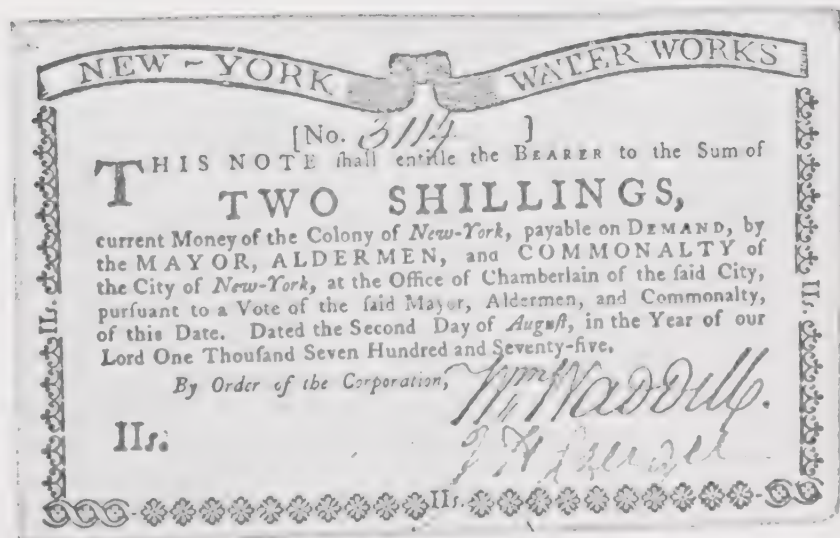 NEW-YORK WATER WORKS
[No. 3114 ]
THIS NOTE ſhall entitle the BEARER to the Sum of
TWO SHILLINGS,
current Money of the Colony of New-York, payable on DEMAND, by
the MAYOR, ALDERMEN, and COMMONALTY of
the City of New-York, at the Office of Chamberlain of the ſaid City,
purſuant to a Vote of the ſaid Mayor, Aldermen, and Commonalty,
of this Date. Dated the Second Day of Auguſt, in the Year of our
Lord One Thouſand Seven Hundred and Seventy-five.
By Order of the Corporation,
Wm Waddell.
IIs.
IIs.
IIs.
IIs.